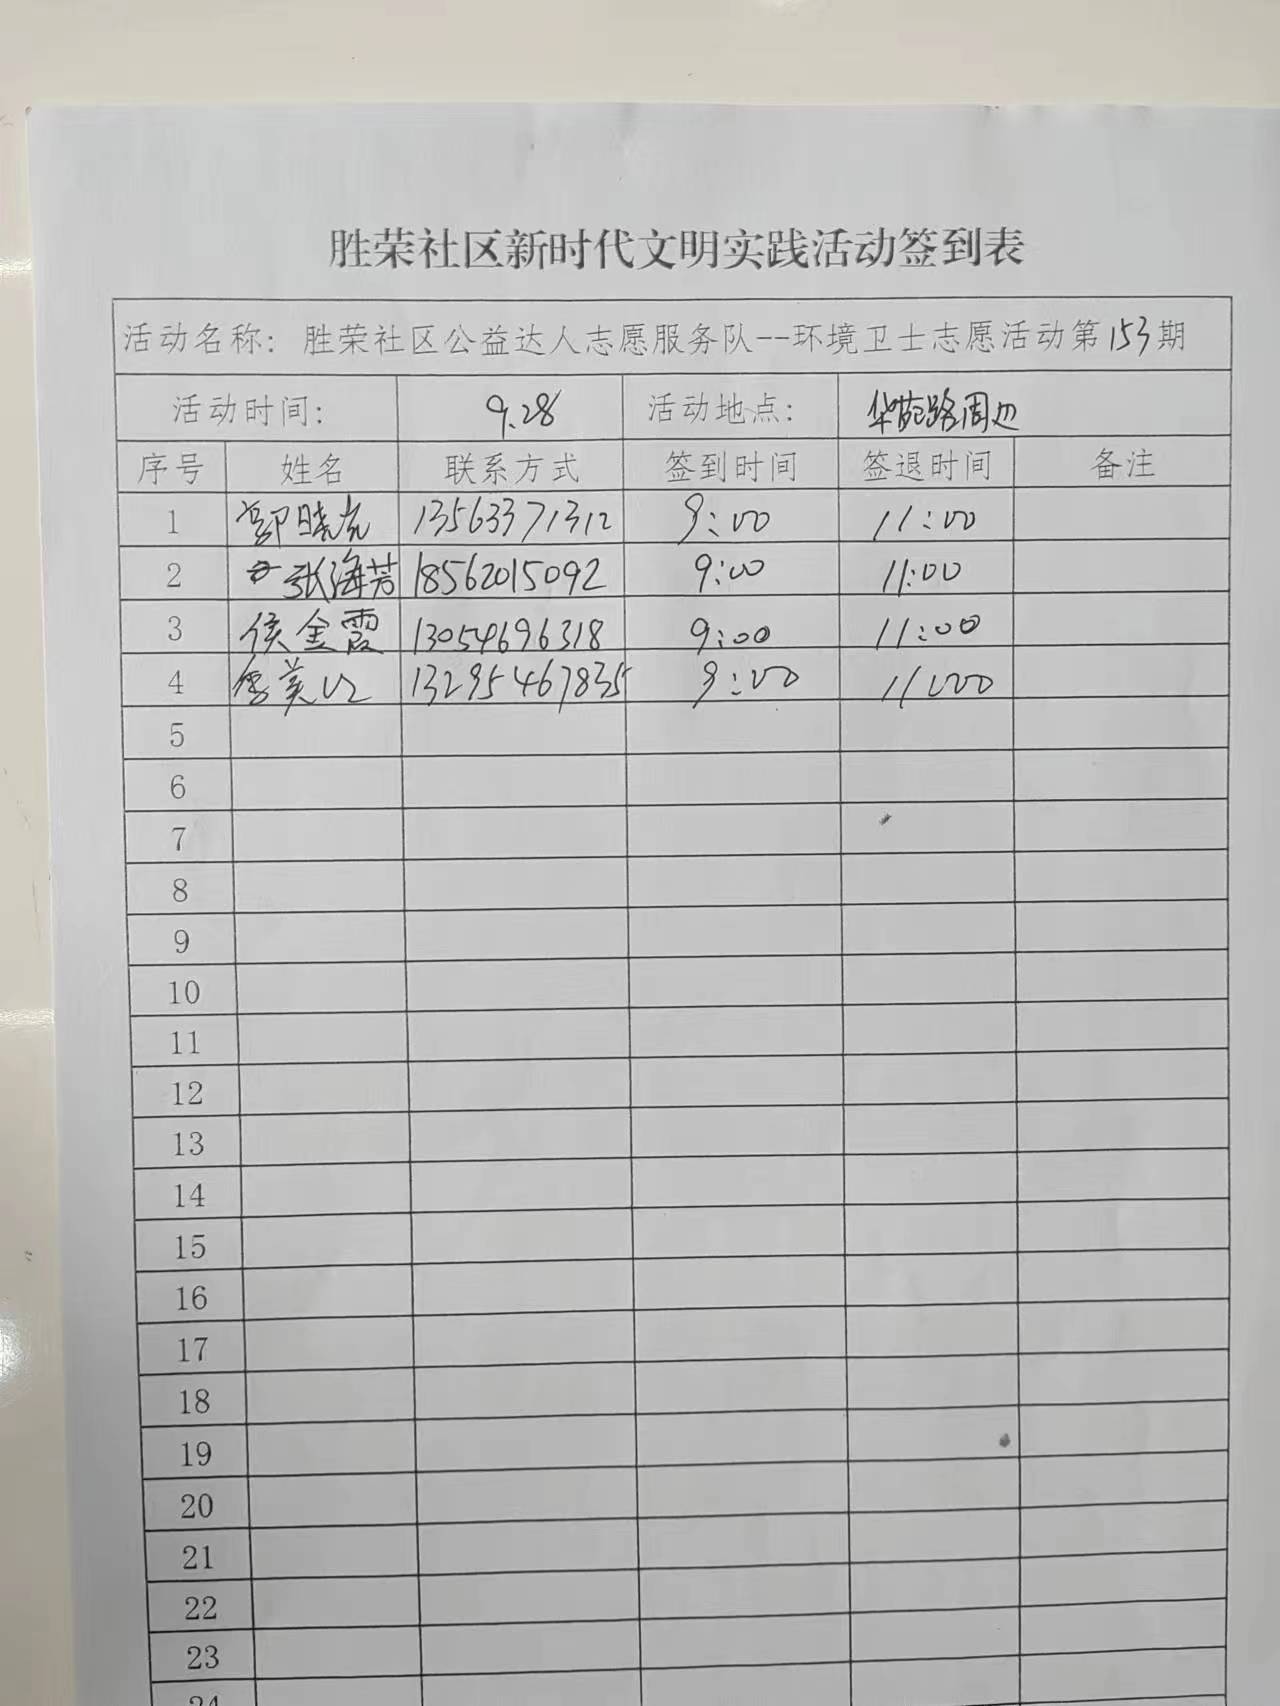 胜荣社区新时代文明实践活动签到表
活动名称：胜荣社区公益达人志愿服务队--环境卫士志愿活动第153期
活动时间： 9.28 活动地点： 华苑路周边
序号 姓名 联系方式 签到时间 签退时间 备注
1 郭晓 13563371312 9:00 11:00
2 张海芳 18562015092 9:00 11:00
3 侯金霞 13054696318 9:00 11:00
4 李美 13295467835 9:00 11:00
5
6
7
8
9
10
11
12
13
14
15
16
17
18
19
20
21
22
23
24